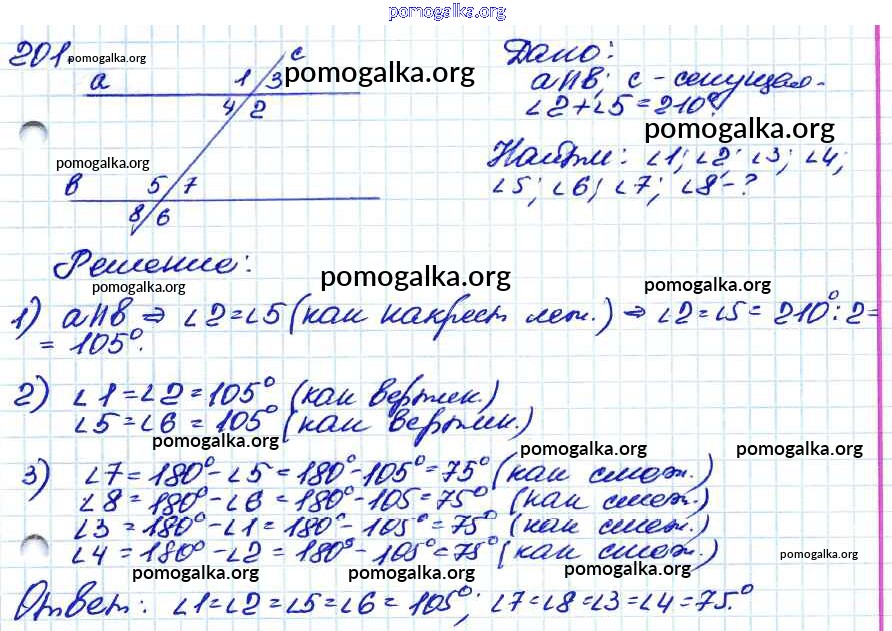 pomogalka.org
201. pomogalka.org
a 1 3 c pomogalka.org
4 2
pomogalka.org
в 5 7
8 6
Дано:
a||в; c - секущая.
∠2+∠5=210°.
pomogalka.org
Найти: ∠1; ∠2; ∠3; ∠4;
∠5; ∠6; ∠7; ∠8-?
Решение:
pomogalka.org pomogalka.org pomogalka.org
1) a||в ⇒ ∠2=∠5 (как накрест леж.) ⇒ ∠2=∠5= 210°:2=
= 105°.
2) ∠1=∠2=105° (как вертик.)
∠5=∠6=105° (как вертик.)
pomogalka.org pomogalka.org pomogalka.org
3) ∠7=180°-∠5=180°-105°=75° (как смеж.)
∠8=180°-∠6=180°-105=75° (как смеж.)
∠3=180°-∠1=180°-105°=75° (как смеж.)
∠4=180°-∠2=180°-105°=75° (как смеж.)
pomogalka.org pomogalka.org pomogalka.org pomogalka.org
Ответ: ∠1=∠2=∠5=∠6=105°; ∠7=∠8=∠3=∠4=75°.